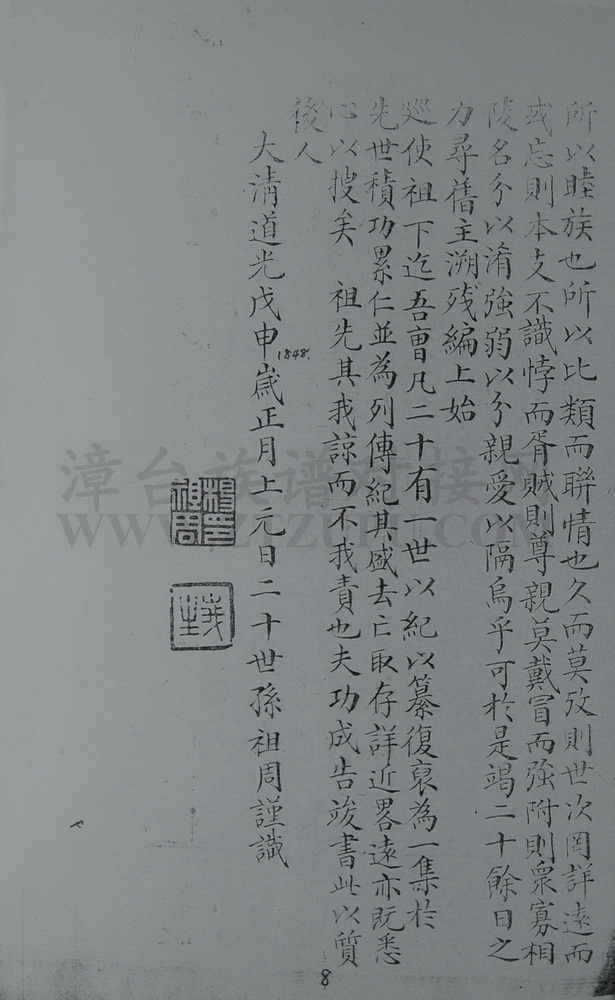 所以睦族也所以比類而聯情也久而莫攷則世次罔詳遠而
或忘則本支不識悖而胥賊則尊親莫戴冒而強附則衆寡相
陵名分以淆強弱以分親愛以隔烏乎可於是竭二十餘日之
力尋舊主溯残編上始
廵使祖下迄吾曺凡二十有一世以紀以纂復裒為一集於
先世積功累仁並為列傳紀其盛去亡取存詳近畧遠亦既悉
心以搜矣 祖先其我諒而不我責也夫功成告竣書此以質
後人
大清道光戊申歲正月上元日二十世孫祖周謹識
1848.
漳台族谱对接
8